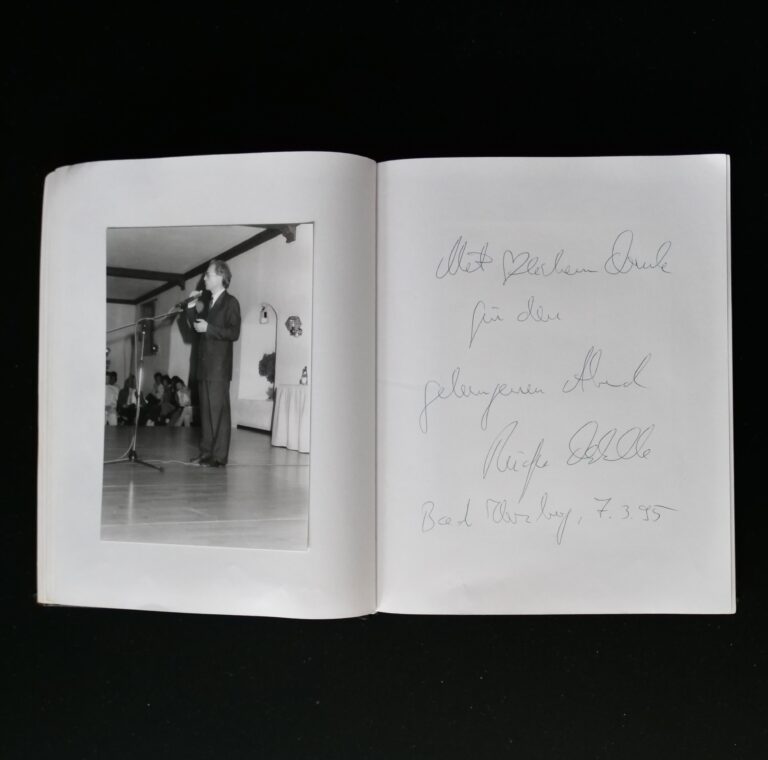 Mit ♡lichem Dank
für den
gelungenen Abend
Bad Harzburg, 7.3.95